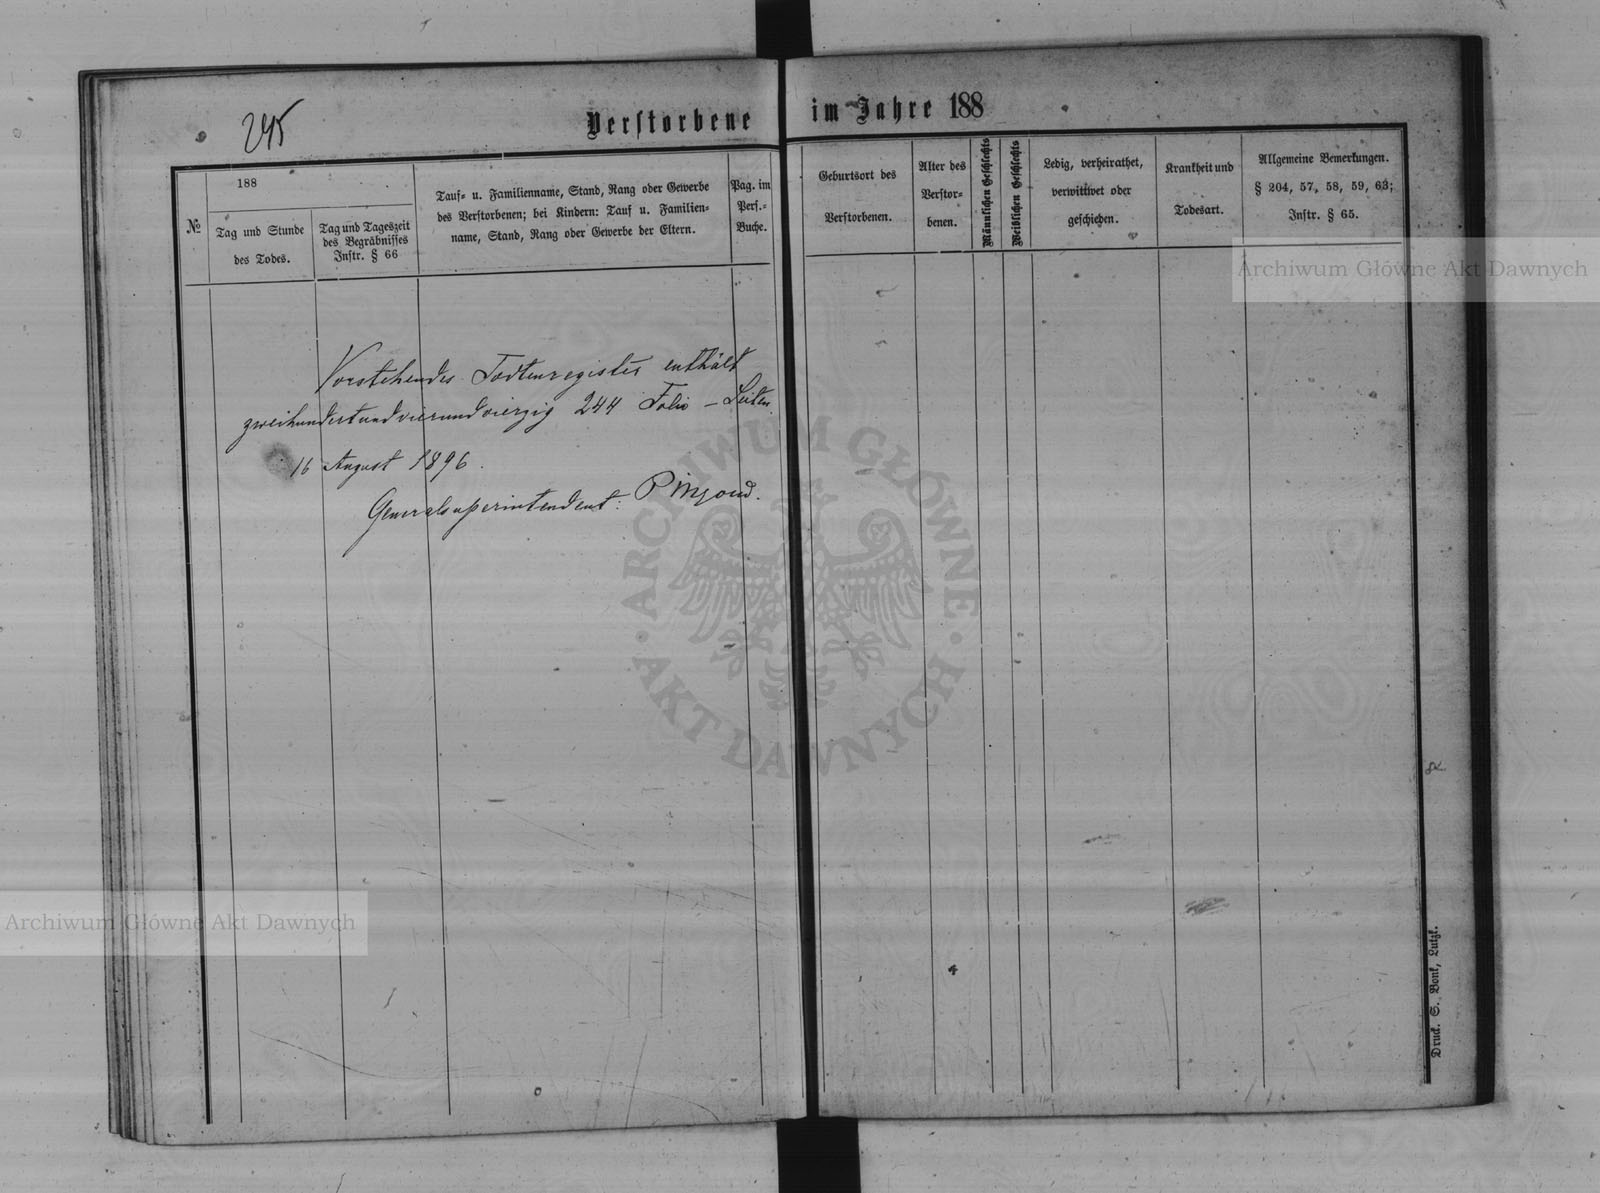 245
Verstorbene im Jahre 188
№
188
Tag und Stunde
des Todes.
Tag und Tageszeit
des Begräbnisses
Instr. § 66
Tauf- u. Familienname, Stand, Rang oder Gewerbe
des Verstorbenen; bei Kindern: Tauf u. Familien-
name, Stand, Rang oder Gewerbe der Eltern.
Pag. im
Pers.-
Buche.
Geburtsort des
Verstorbenen.
Alter des
Verstor-
benen.
Männlichen Geschlechts
Weiblichen Geschlechts
Ledig, verheirathet,
verwittwet oder
geschieden.
Krankheit und
Todesart.
Allgemeine Bemerkungen.
§ 204, 57, 58, 59, 63;
Instr. § 65.
Vorstehendes Todtenregister enthält
zweihundertundvierundvierzig 244 Folio - Seiten.
16 August 1896.
Generalsuperintendent: Pingoud.
Druck. S. Bonk, Lutzk.
Archiwum Główne Akt Dawnych
Archiwum Główne Akt Dawnych
ARCHIWUM GŁÓWNE
AKT DAWNYCH